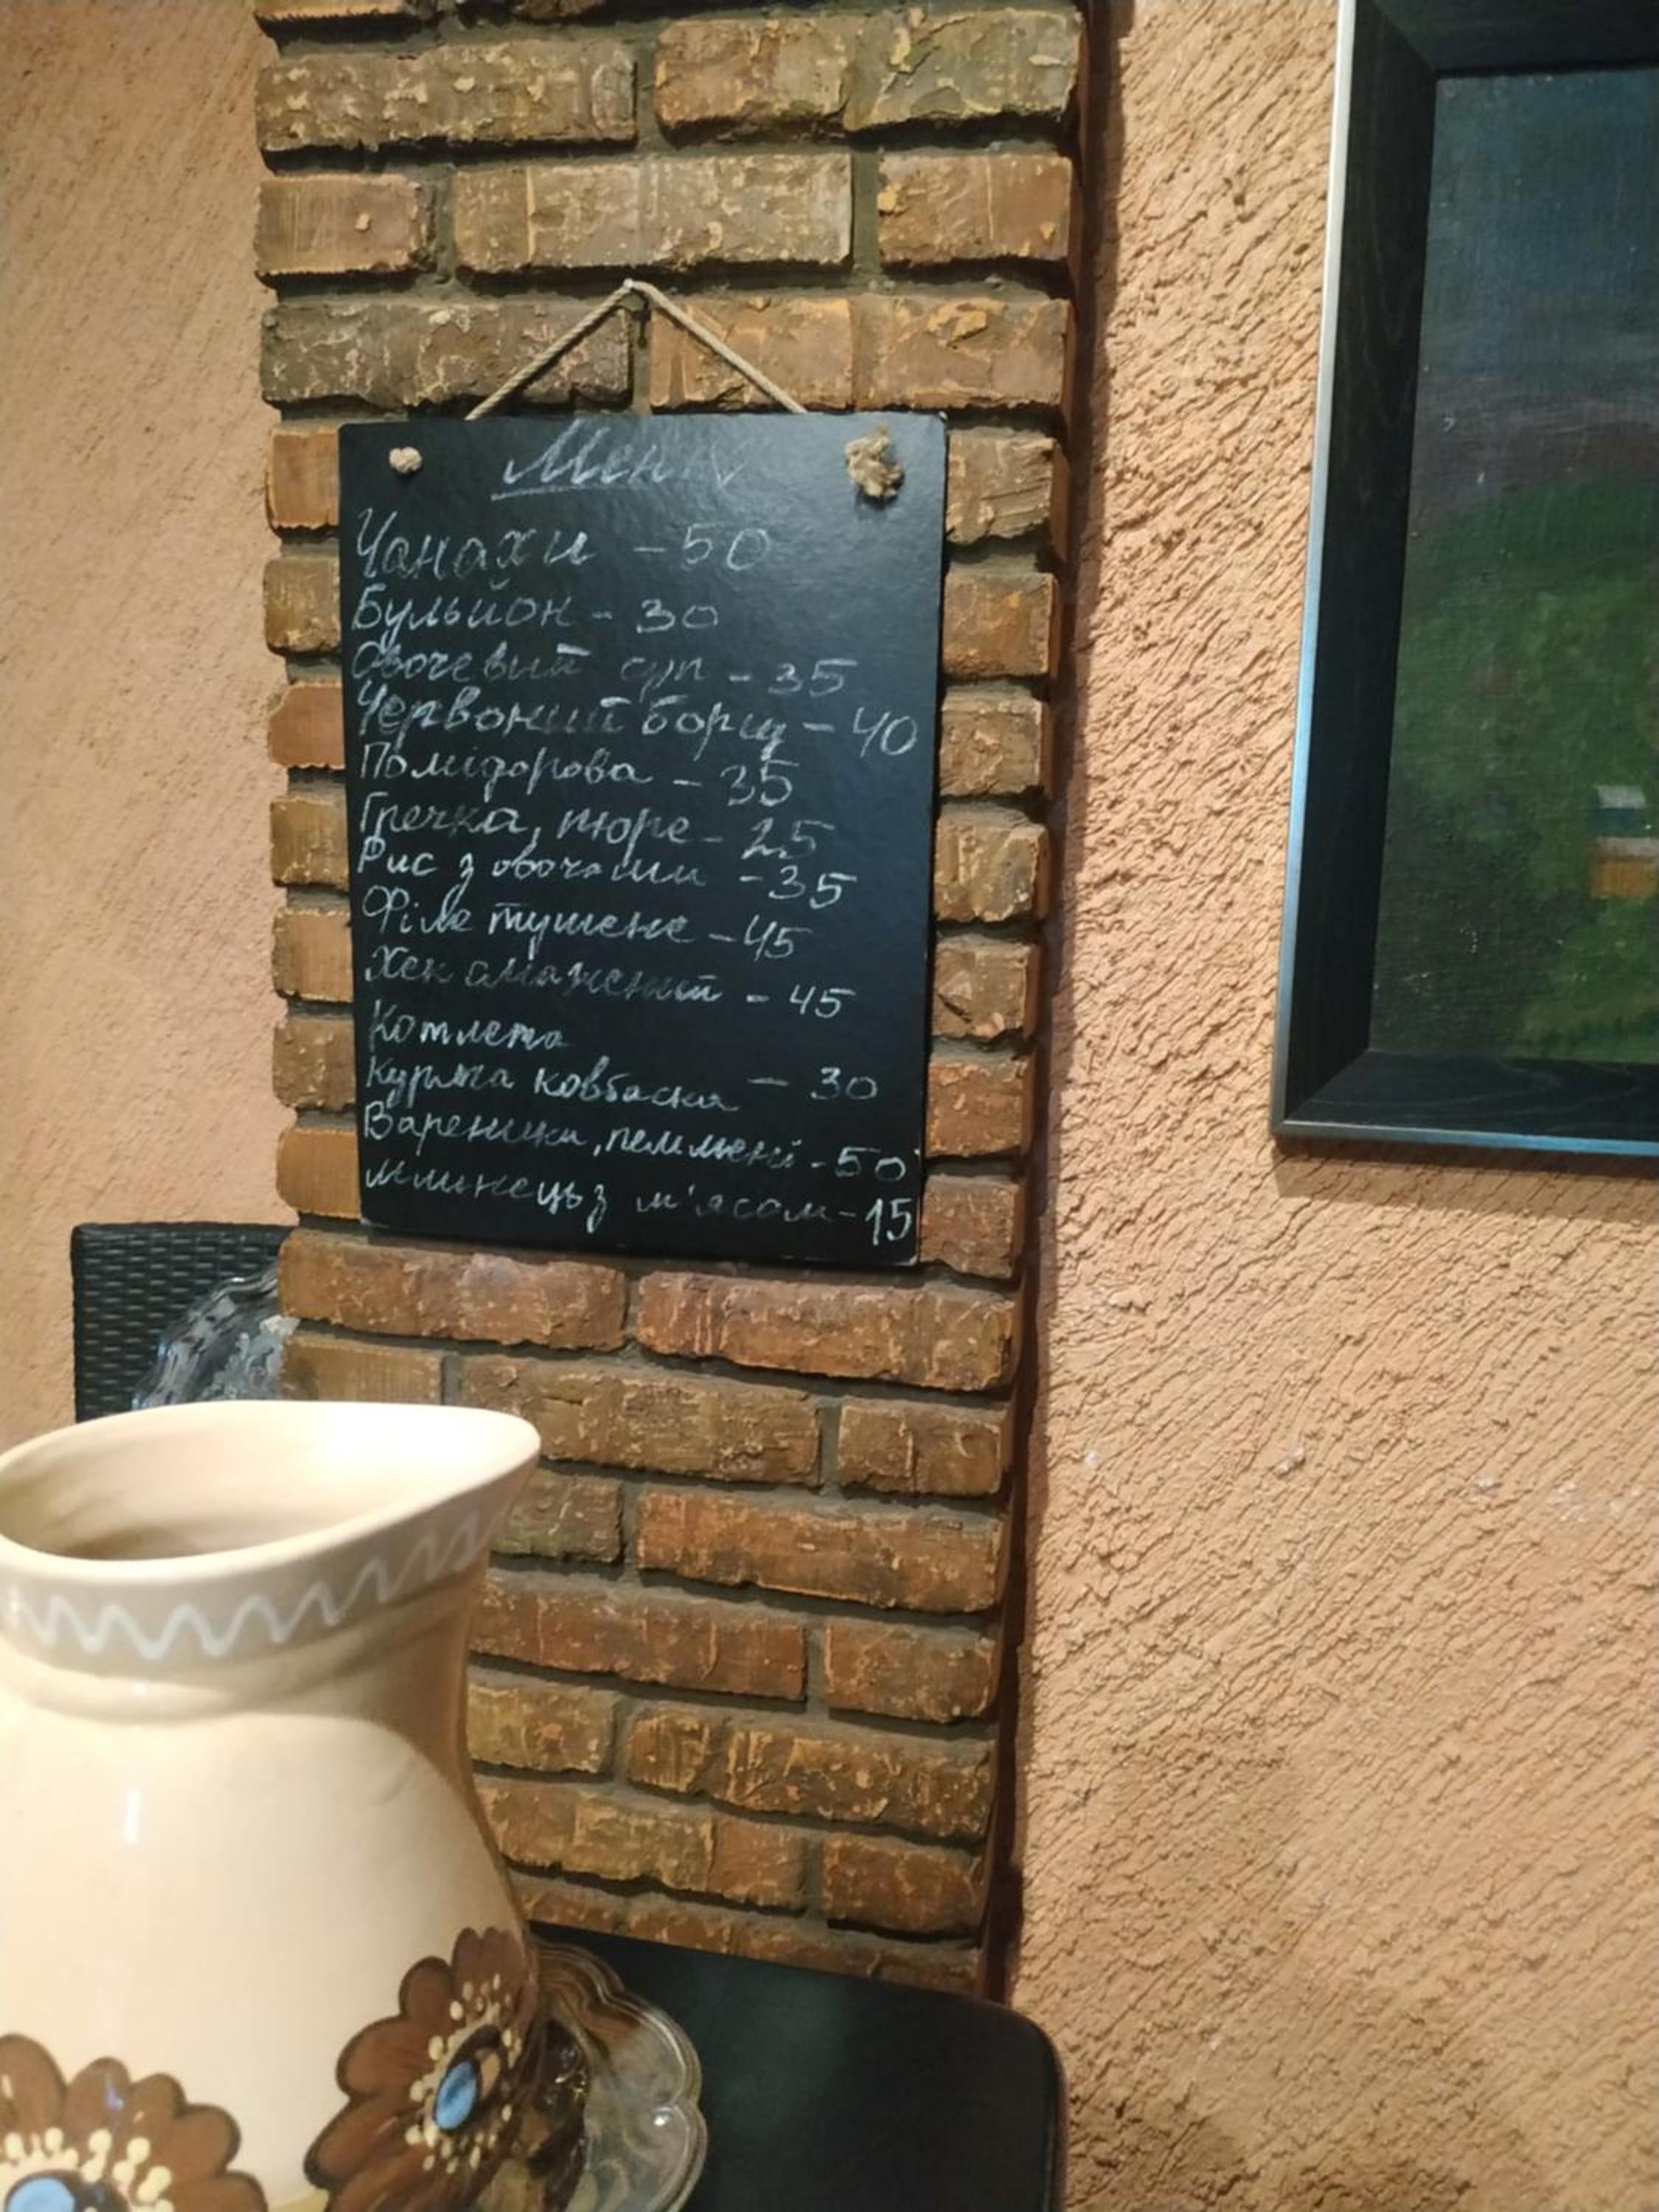 Меню
Чанахи - 50
Бульйон - 30
Овочевий суп - 35
Червоний борщ - 40
Помідорова - 35
Гречка, пюре - 25
Рис з овочами - 35
Філе тушене - 45
Хек смажений - 45
Котлета
Куряча ковбаска - 30
Вареники, пельмені - 50
млинець з м'ясом - 15